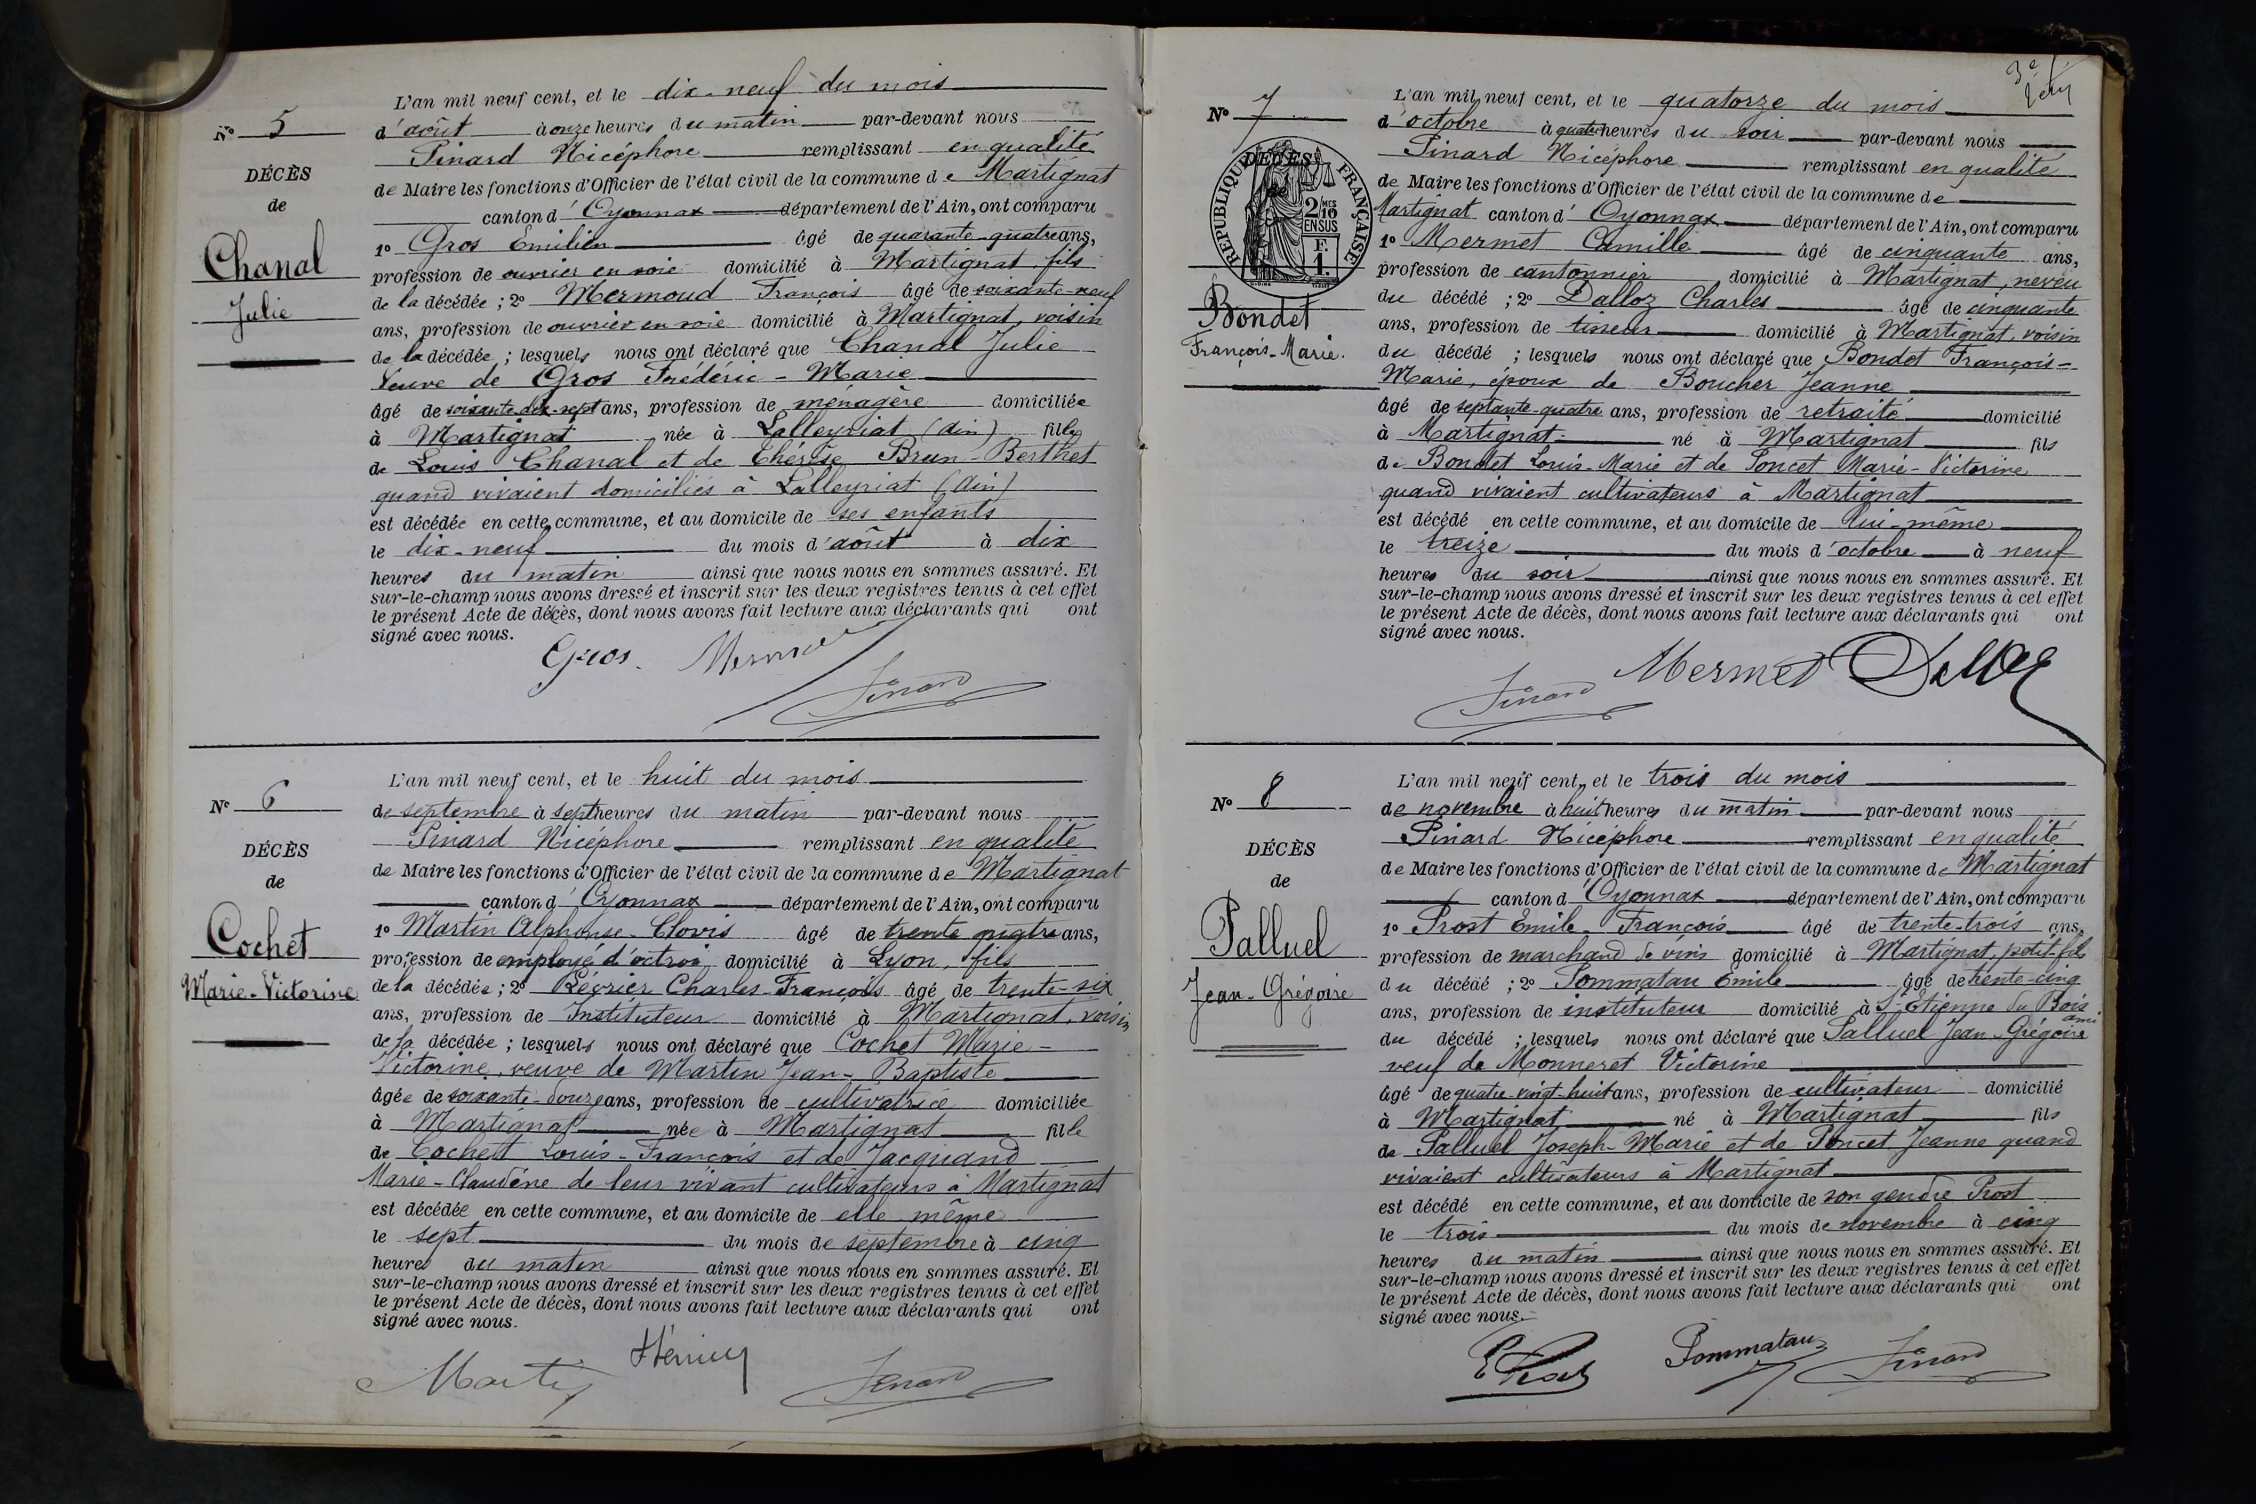 N° 5
DÉCÈS
de
Chanal
Julie
L'an mil neuf cent, et le dix-neuf du mois
d'août à onze heures du matin par-devant nous
Pinard Nicéphore remplissant en qualité
de Maire les fonctions d'Officier de l'état civil de la commune de Martignat
canton d'Oyonnax département de l'Ain, ont comparu
1° Gros Emilien âgé de quarante-quatre ans,
profession de ouvrier en soie domicilié à Martignat, fils
de la décédée ; 2° Mermoud François âgé de soixante-neuf
ans, profession de ouvrier en soie domicilié à Martignat, voisin
de la décédée ; lesquels nous ont déclaré que Chanal Julie
Veuve de Gros Frédéric-Marie
âgé de soixante-dix-sept ans, profession de ménagère domiciliée
à Martignat née à Lalleyriat (Ain) fille
de Louis Chanal et de Thérèse Brun-Berthet
quand vivaient domiciliés à Lalleyriat (Ain)
est décédée en cette commune, et au domicile de ses enfants
le dix-neuf du mois d'août à dix
heures du matin ainsi que nous nous en sommes assuré. Et
sur-le-champ nous avons dressé et inscrit sur les deux registres tenus à cet effet
le présent Acte de décès, dont nous avons fait lecture aux déclarants qui ont
signé avec nous.
Gros
Pinard
N° 6
DÉCÈS
de
Cochet
Marie-Victorine
L'an mil neuf cent, et le huit du mois
de septembre à sept heures du matin par-devant nous
Pinard Nicéphore remplissant en qualité
de Maire les fonctions d'Officier de l'état civil de la commune de Martignat
canton d'Oyonnax département de l'Ain, ont comparu
1° Martin Alphonse-Clovis âgé de trente quatre ans,
profession de employé d'octroi domicilié à Lyon, fils
de la décédée ; 2° Charles-François âgé de trente-six
ans, profession de Instituteur domicilié à Martignat, voisin
de la décédée ; lesquels nous ont déclaré que Cochet Marie-
Victorine, veuve de Martin Jean-Baptiste
âgée de soixante-douze ans, profession de cultivatrice domiciliée
à Martignat née à Martignat fille
de Cochet Louis-François et de Jacquand
Marie-Claudine de leur vivant cultivateurs à Martignat
est décédée en cette commune, et au domicile de elle même
le sept du mois de septembre à cinq
heures du matin ainsi que nous nous en sommes assuré. Et
sur-le-champ nous avons dressé et inscrit sur les deux registres tenus à cet effet
le présent Acte de décès, dont nous avons fait lecture aux déclarants qui ont
signé avec nous.
Martin
Pinard
3e
N° 7
DÉCÈS
de
RÉPUBLIQUE FRANÇAISE
2/10
MES
EN SUS
F.
1.
Bondet
François-Marie.
L'an mil neuf cent, et le quatorze du mois
d'octobre à quatre heures du soir par-devant nous
Pinard Nicéphore remplissant en qualité
de Maire les fonctions d'Officier de l'état civil de la commune de
Martignat canton d'Oyonnax département de l'Ain, ont comparu
1° Mermet Camille âgé de cinquante ans,
profession de cantonnier domicilié à Martignat, neveu
du décédé ; 2° Dalloz Charles âgé de cinquante
ans, profession de tisseur domicilié à Martignat, voisin
du décédé ; lesquels nous ont déclaré que Bondet François-
Marie, époux de Boucher Jeanne
âgé de septante-quatre ans, profession de retraité domicilié
à Martignat né à Martignat fils
de Bondet Louis-Marie et de Poncet Marie-Victorine
quand vivaient cultivateurs à Martignat
est décédé en cette commune, et au domicile de lui-même
le treize du mois d'octobre à neuf
heures du soir ainsi que nous nous en sommes assuré. Et
sur-le-champ nous avons dressé et inscrit sur les deux registres tenus à cet effet
le présent Acte de décès, dont nous avons fait lecture aux déclarants qui ont
signé avec nous.
Mermet Dalloz
Pinard
N° 8
DÉCÈS
de
Palluel
Jean-Grégoire
L'an mil neuf cent, et le trois du mois
de novembre à huit heures du matin par-devant nous
Pinard Nicéphore remplissant en qualité
de Maire les fonctions d'Officier de l'état civil de la commune de Martignat
canton d'Oyonnax département de l'Ain, ont comparu
1° Prost Emile-François âgé de trente-trois ans,
profession de marchand de vins domicilié à Martignat, petit-fils
du décédé ; 2° Pommatau Emile âgé de trente-cinq
ans, profession de instituteur domicilié à St-Etienne du Bois
ami
du décédé ; lesquels nous ont déclaré que Palluel Jean-Grégoire
veuf de Monneret Victorine
âgé de quatre vingt-huit ans, profession de cultivateur domicilié
à Martignat né à Martignat fils
de Palluel Joseph-Marie et de Poncet Jeanne quand
vivaient cultivateurs à Martignat
est décédé en cette commune, et au domicile de son gendre Prost
le trois du mois de novembre à cinq
heures du matin ainsi que nous nous en sommes assuré. Et
sur-le-champ nous avons dressé et inscrit sur les deux registres tenus à cet effet
le présent Acte de décès, dont nous avons fait lecture aux déclarants qui ont
signé avec nous.
E Prost
Pommatau
Pinard